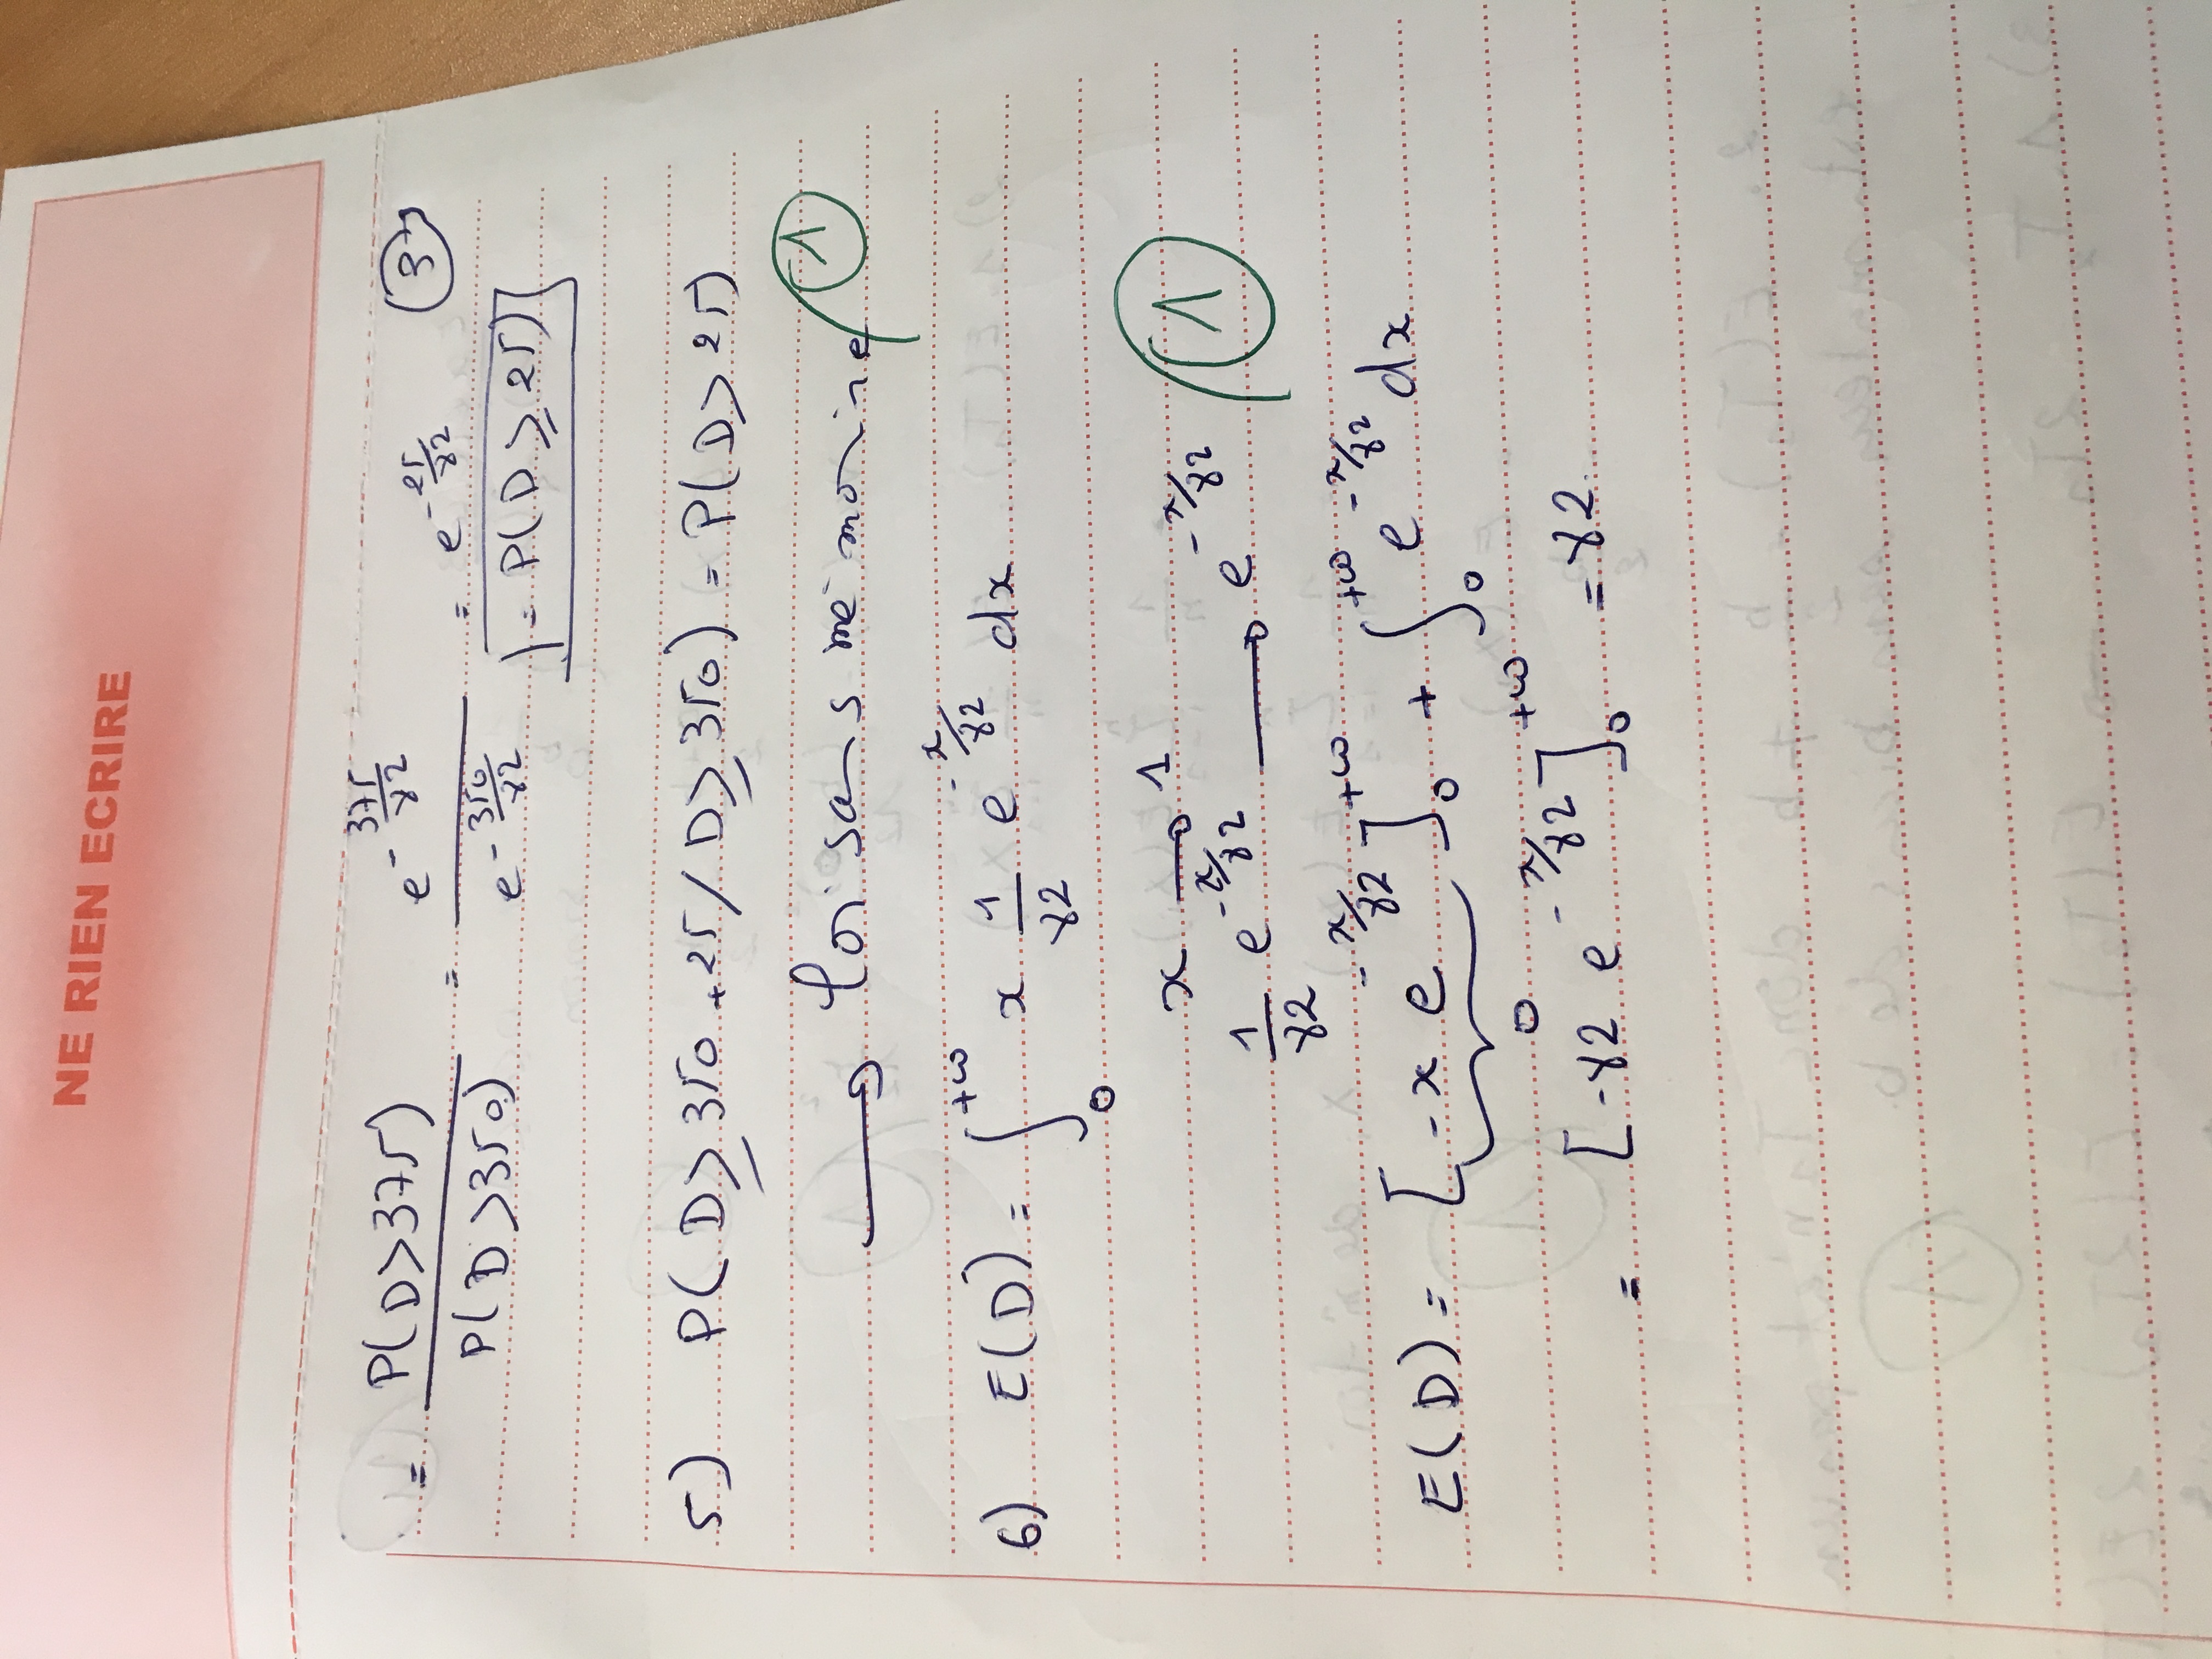 NE RIEN ECRIRE
= P(D>375) / P(D>350) = e^{-375/82} / e^{-350/82} = e^{-25/82} 3
= P(D ≥ 25)
5) P(D ≥ 350 + 25 / D ≥ 350) = P(D > 25)
→ loi sans mémoire 1
6) E(D) = ∫_0^{+∞} x 1/82 e^{-x/82} dx
x → 1
1/82 e^{-x/82} → e^{-x/82} 1
E(D) = [-x e^{-x/82}]_0^{+∞} + ∫_0^{+∞} e^{-x/82} dx
0
= [-82 e^{-x/82}]_0^{+∞} = 82.